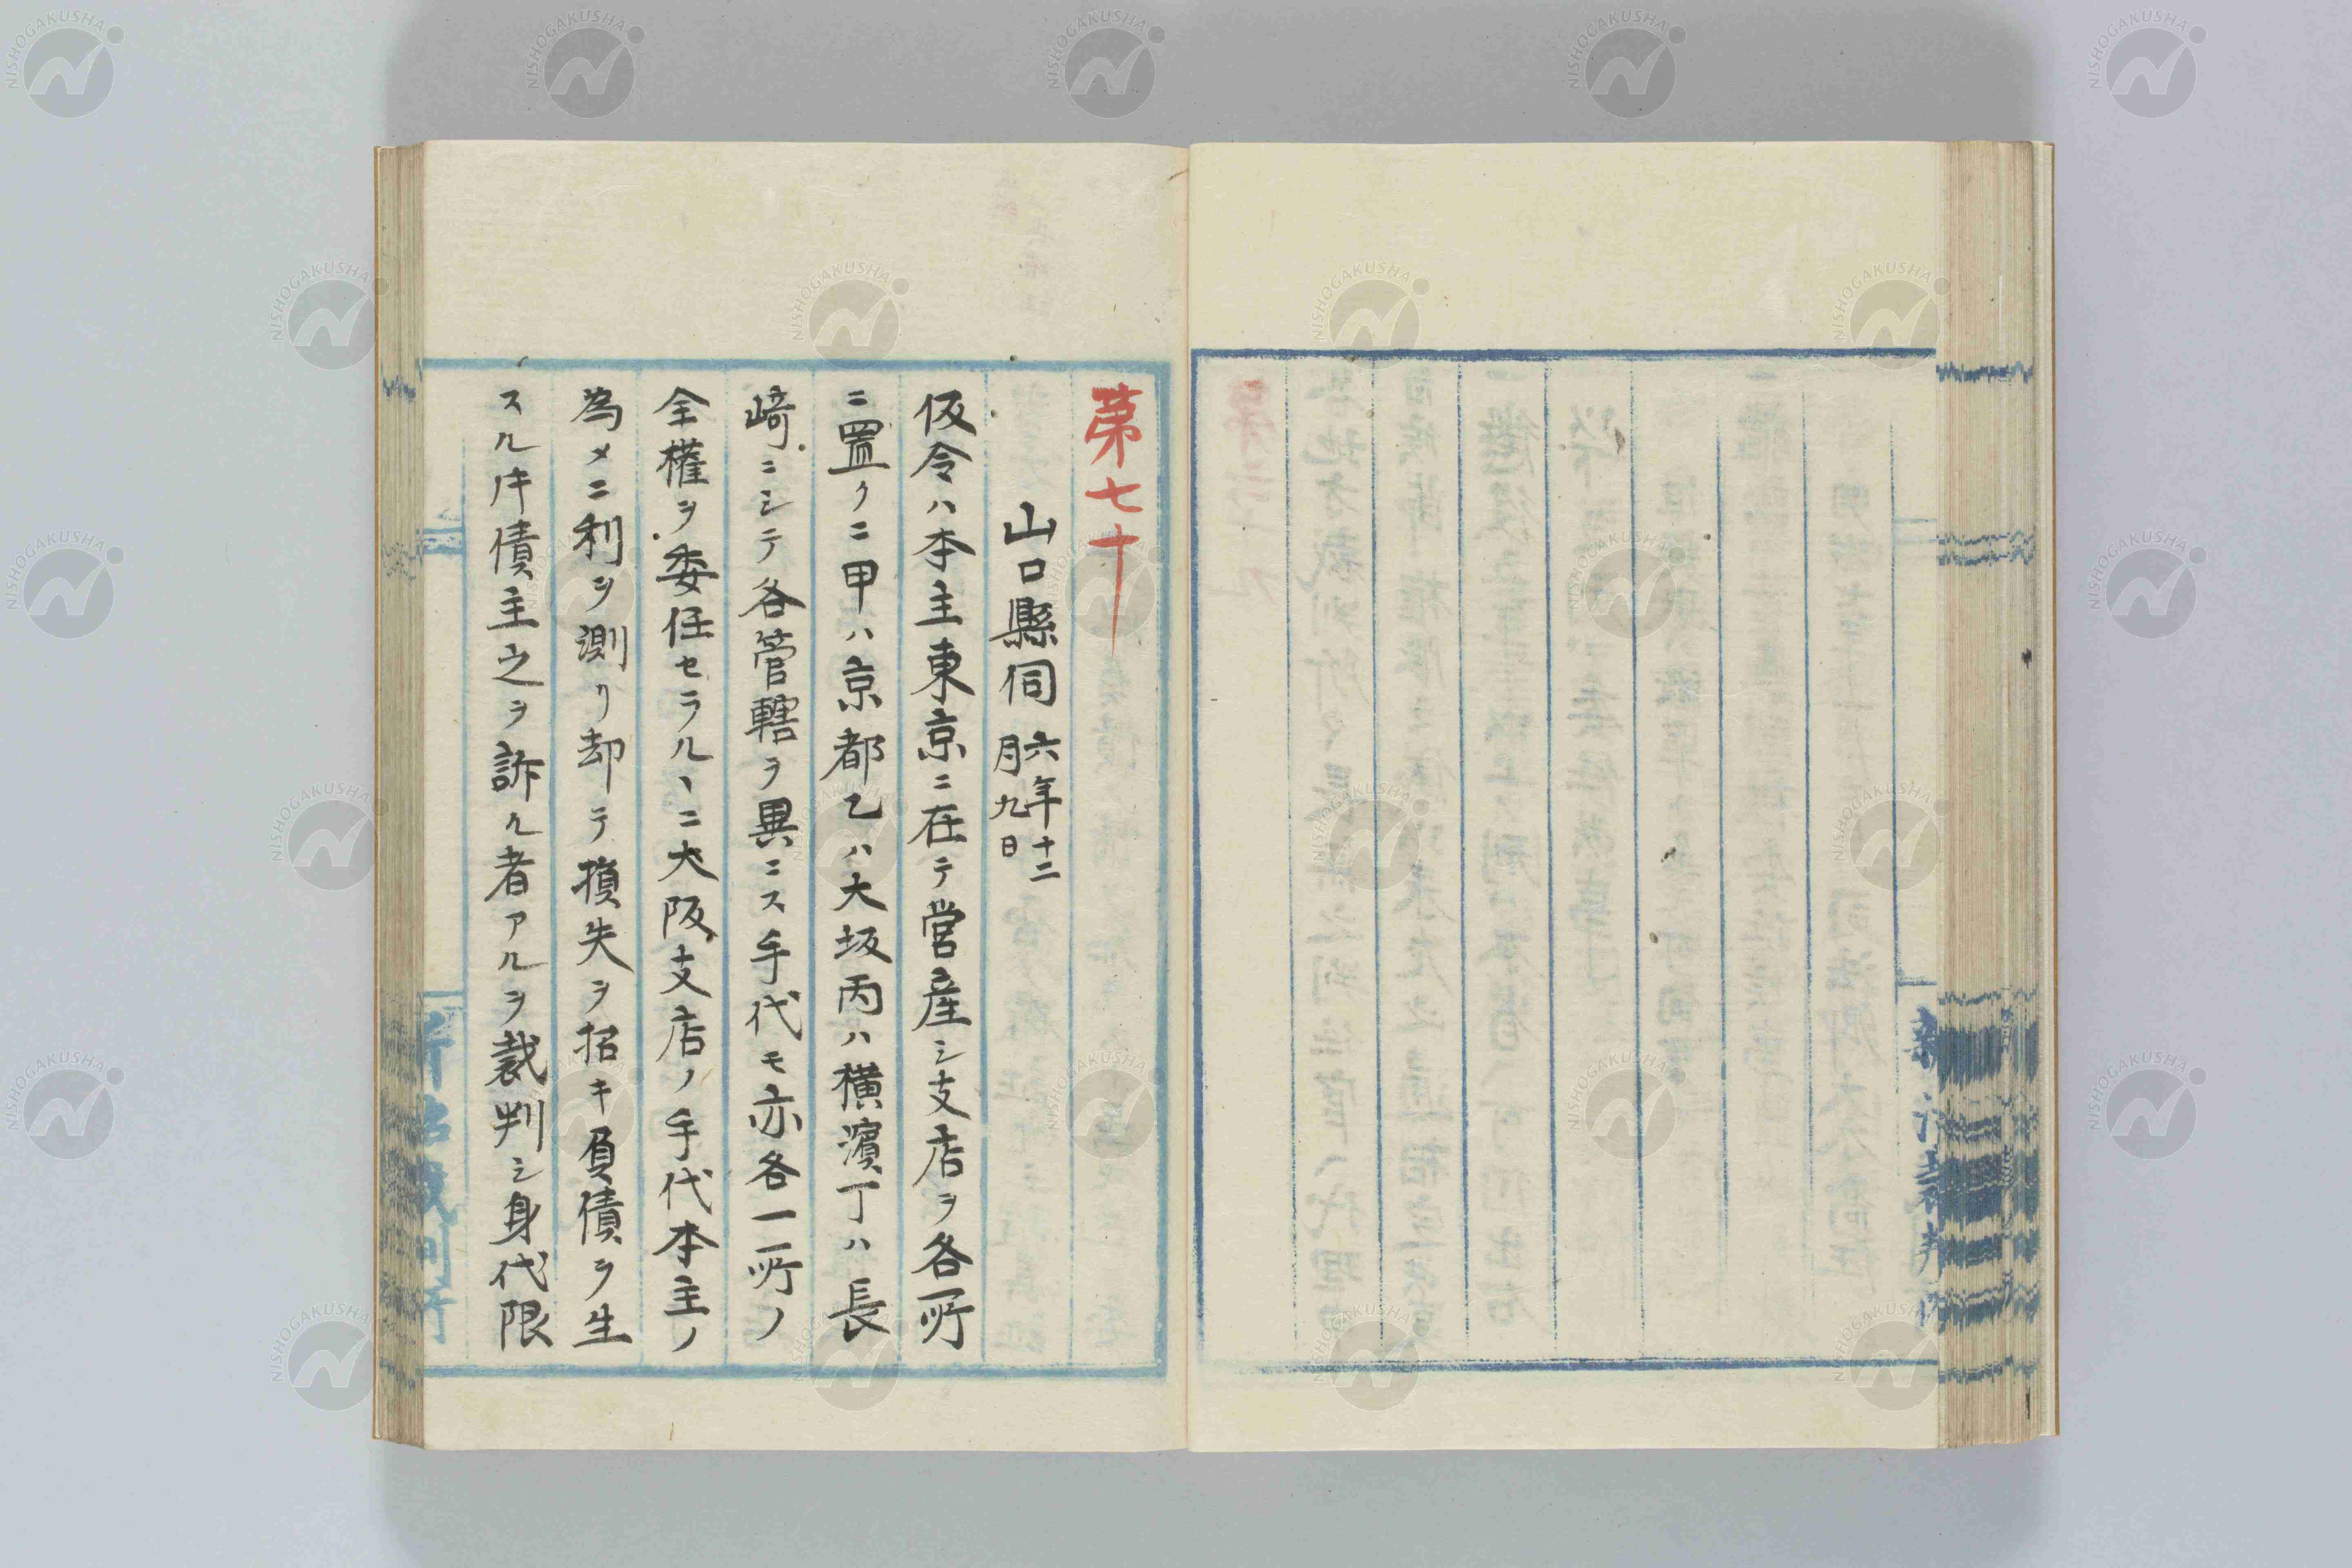 第七十
山口縣伺 六年十二月九日
仮令ハ本主東京ニ在テ営産シ支店ヲ各所
ニ置クニ甲ハ京都乙ハ大坂丙ハ横濱丁ハ長
崎ニシテ各管轄ヲ異ニス手代モ亦各一所ノ
全權ヲ委任セラルヽニ大阪支店ノ手代本主ノ
為メニ利ヲ測リ却テ損失ヲ招キ負債ヲ生
スルㇳキ債主之ヲ訴ル者アルヲ裁判シ身代限
NISHOGAKUSHA